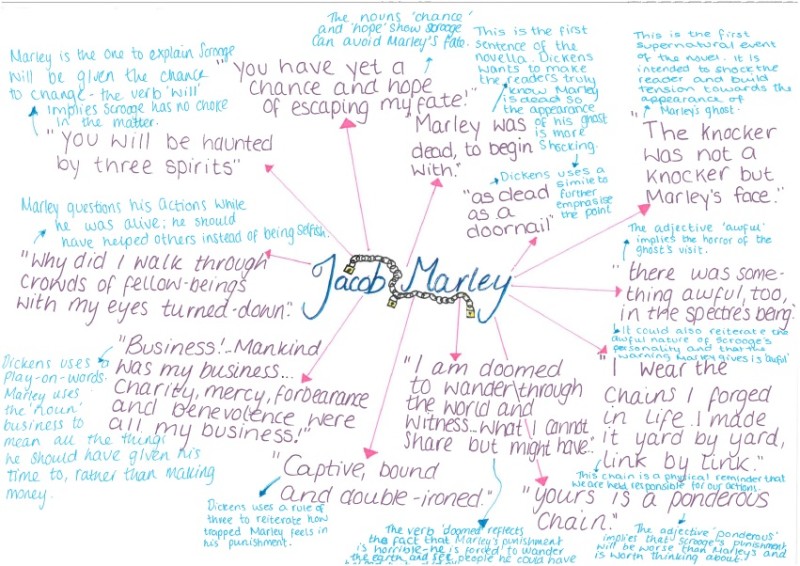 Marley is the one to explain Scrooge
will be given the chance
to change - the verb 'will'
implies Scrooge has no choice
in the matter.
"You will be haunted
by three spirits"
The nouns 'chance'
and 'hope' show scrooge
can avoid Marley's fate.
"You have yet a
chance and hope
of escaping my fate."
This is the first
sentence of the
novella. Dickens
wants to make
the readers truly
know Marley
is dead so
the appearance
of his ghost
is more
shocking.
"Marley was
dead, to begin
with."
Dickens uses a
simile to
further
emphasise
the point
"as dead
as a
doornail"
This is the first
supernatural event
of the novel. It is
intended to shock the
reader and build
tension towards the
appearance of
Marley's ghost.
"The knocker
was not a
knocker but
Marley's face."
Marley questions his actions while
he was alive; he should
have helped others instead of being selfish.
"Why did I walk through
crowds of fellow-beings
with my eyes turned-down."
Jacob Marley
The adjective 'awful'
implies the horror of the
ghost's visit.
"there was some-
thing awful, too,
in the spectre's being."
It could also reiterate the
awful nature of scrooge's
personality and that the
warning Marley gives is awful
Dickens uses a
play-on-words.
Marley uses
the 'noun'
business to
mean all the things
he should have given his
time to, rather than making
money.
"Business!..Mankind
was my business...
charity, mercy, forbearance
and benevolence were
all my business!"
"I am doomed
to wander through
the world and
witness...what I cannot
share but might have."
"I wear the
chains I forged
in life. I made
it yard by yard,
link by link."
This chain is a physical reminder that
we are held responsible for our actions.
"Captive, bound
and double-ironed."
Dickens uses a rule of
three to reiterate how
trapped Marley feels in
his punishment.
"yours is a ponderous
chain."
The verb 'doomed' reflects
the fact that Marley's punishment
is horrible - he is forced to wander
the earth and see people he could have
The adjective 'ponderous'
implies that scrooge's punishment
will be worse than Marley's and
is worth thinking about.